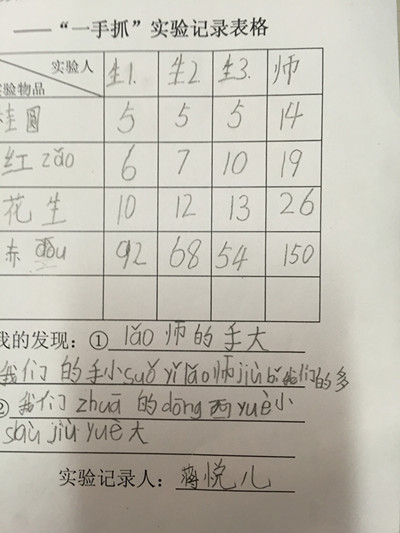 ——“一手抓”实验记录表格
实验人 生1. 生2 生3. 师
实验物品
桂圆 5 5 5 14
红zǎo 6 7 10 19
花生 10 12 13 26
赤dòu 92 68 54 150
我的发现：① lǎo师的手大
我们的手小suǒyǐlǎo师jiùbǐ我们的多
② 我们zhuā的dōng西yuè小
shùjiùyuè大
实验记录人：蒋悦儿